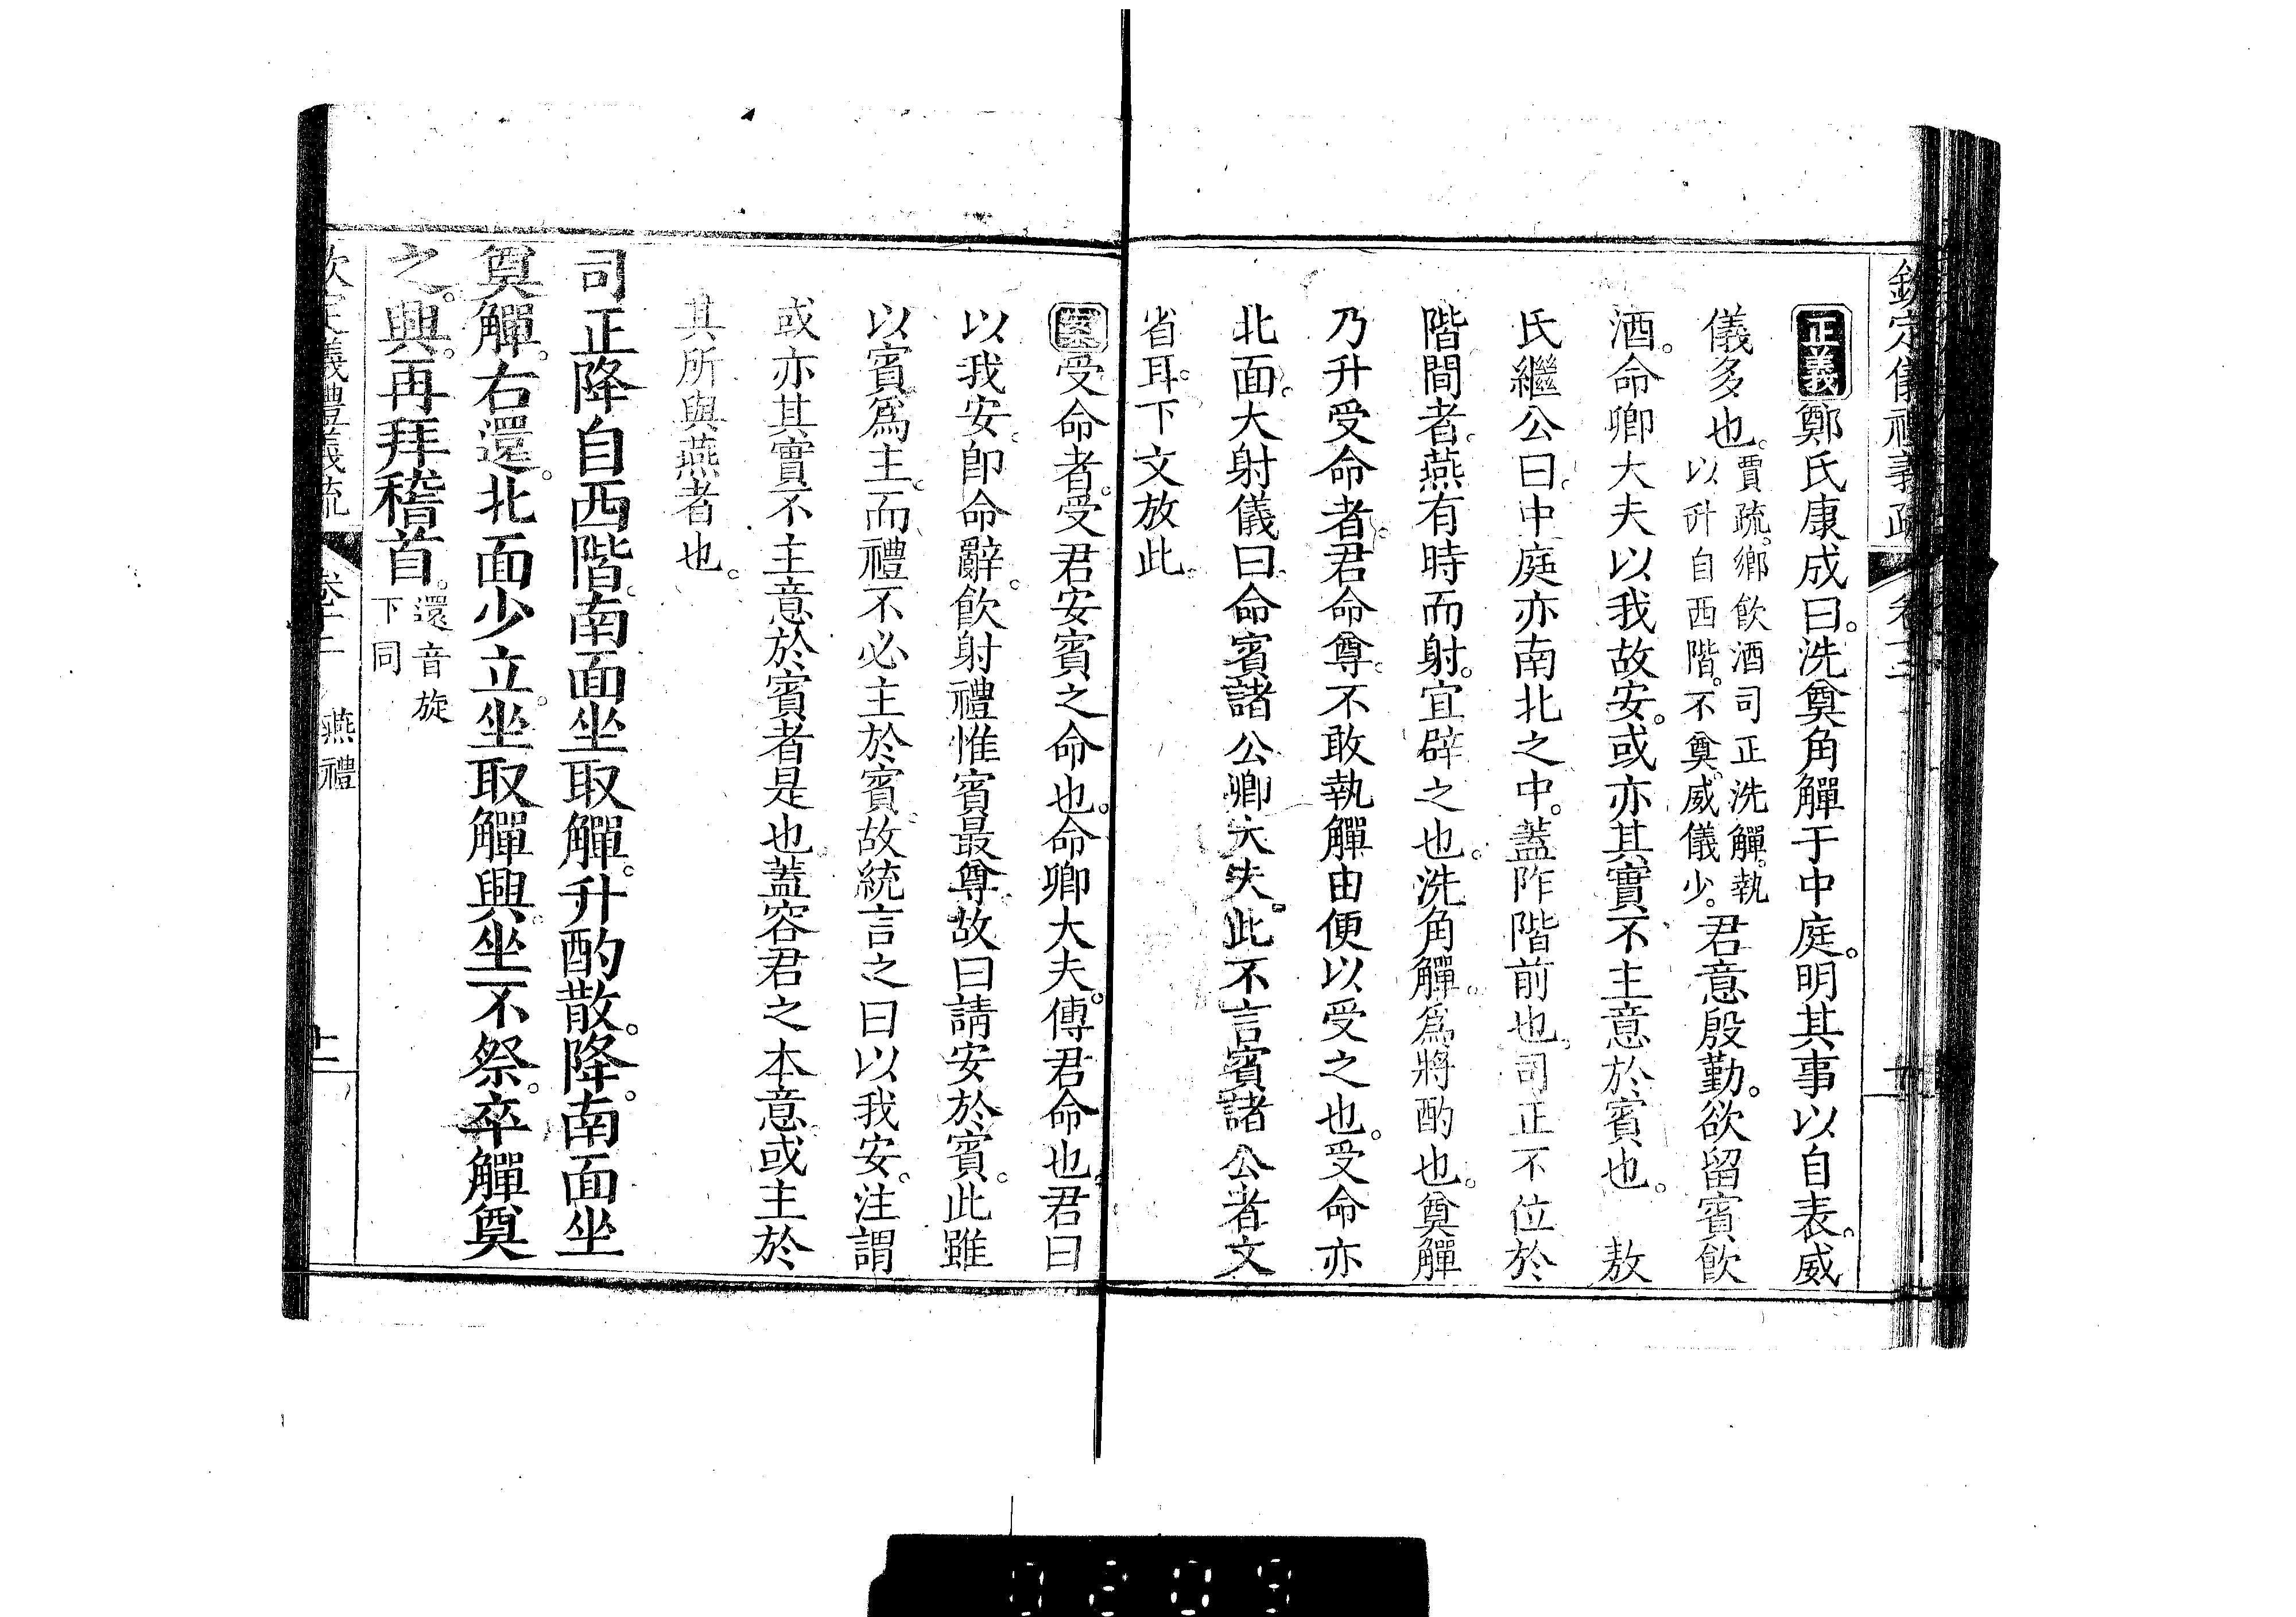 欽定儀禮義疏 卷十二
正義鄭氏康成曰。洗奠角觶于中庭。明其事以自表。威
儀多也。賈疏。鄉飲酒司正洗觶。執以升自西階。不奠。威儀少。君意殷勤。欲留賓飲
酒。命卿大夫以我故安。或亦其實不主意於賓也。 敖
氏繼公曰。中庭亦南北之中。蓋阼階前也。司正不位於
階間者。燕有時而射。宜辟之也。洗角觶。爲將酌也。奠觶
乃升受命者。君命尊。不敢執觶由便以受之也。受命亦
北面。大射儀曰。命賓諸公卿大夫。此不言賓諸公者文
省耳。下文放此。
案受命者。受君安賓之命也。命卿大夫。傳君命也。君曰
以我安。卽命辭。飲射禮惟賓最尊。故曰請安於賓。此雖
以賓爲主。而禮不必主於賓。故統言之曰以我安。注謂
或亦其實不主意於賓者是也。蓋容君之本意或主於
其所與燕者也。
司正降自西階。南面坐取觶。升酌散。降。南面坐
奠觶。右還。北面少立。坐取觶興。坐不祭。卒觶奠
之。興。再拜稽首。還音旋下同
欽定儀禮義疏 卷十二 燕禮